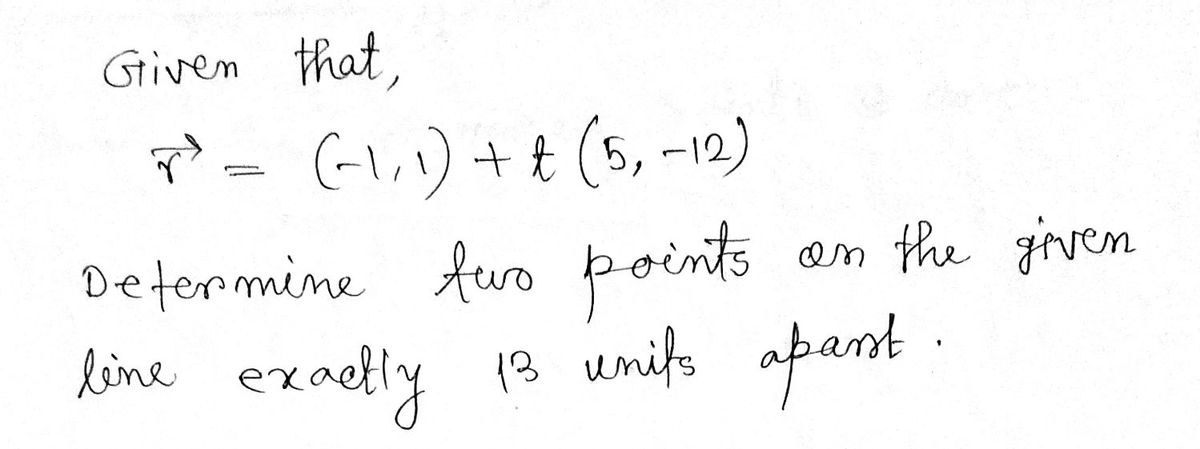 Given that,
r⃗ = (-1, 1) + t (5, -12)
Determine two points on the given
line exactly 13 units apart.